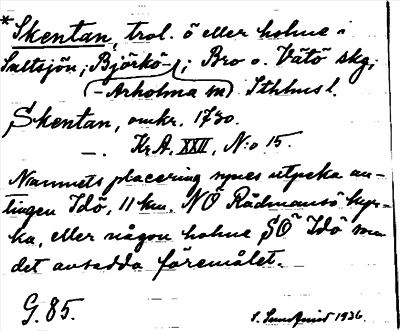 *Skentan, trol. ö eller holme i
Saltsjön; Björkö- ; Bro o. Vätö skg;
-Arholma m) Sthlms l.
Skentan, omkr. 1730.
—. Kr. A. XXII, N:o 15.
Namnets placering synes utpeka an-
tingen Idö, 11 km. NÖ Rådmansö kyr-
ka, eller någon holme SÖ Idö som
det avsedda föremålet.
G. 85.
1936.